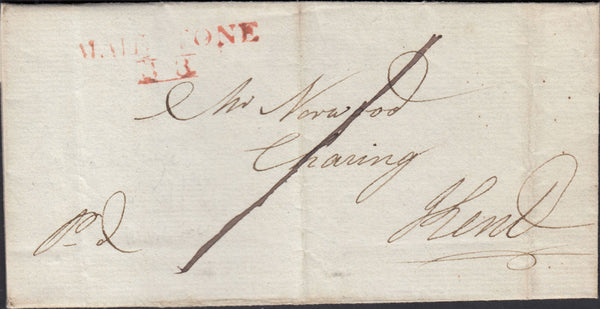 MAIDSTONE
Mr Norwood
Charing
Kent
Pd